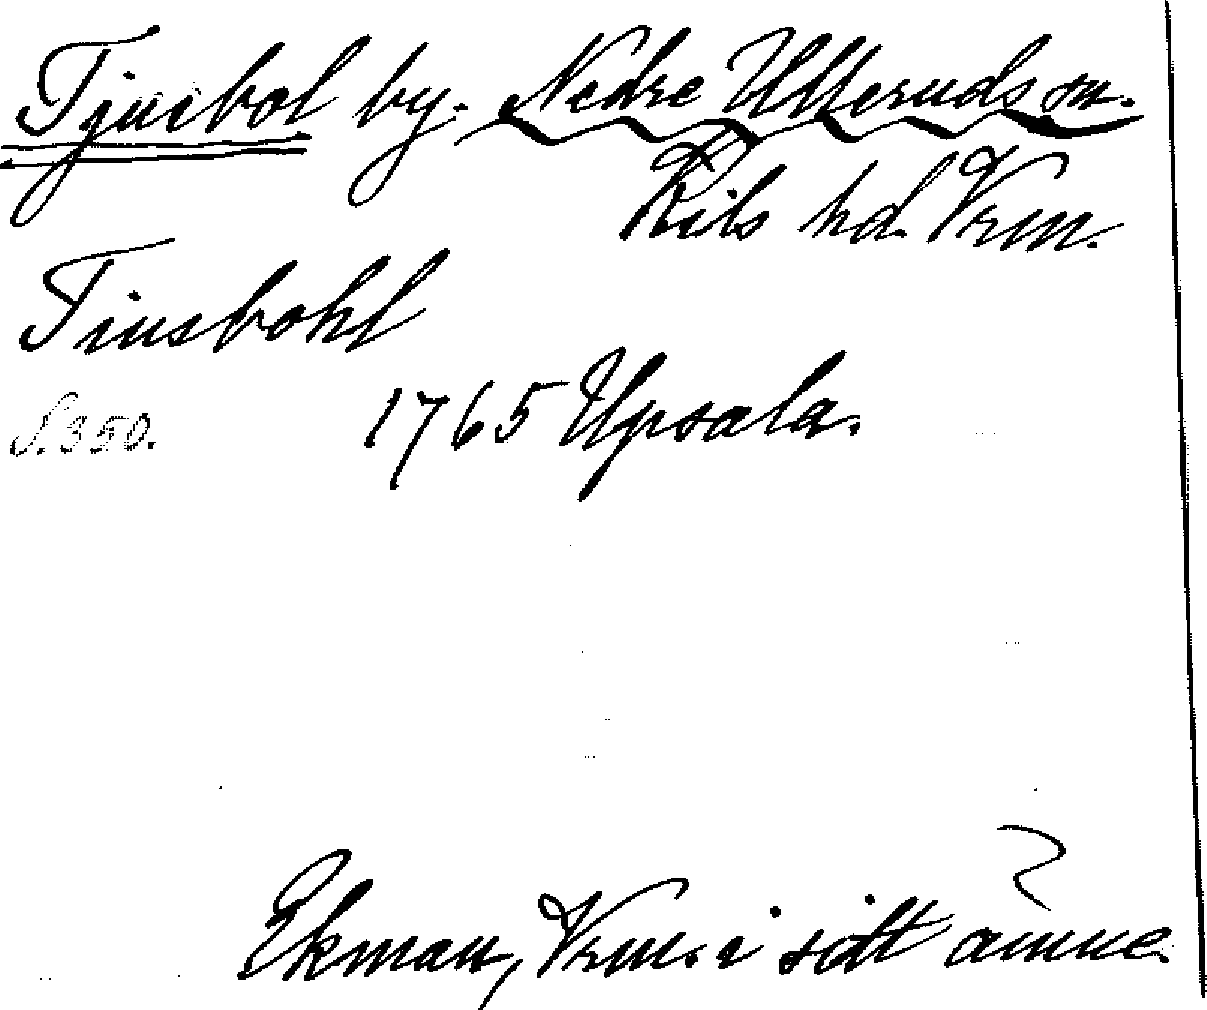 Tjusbol by. Nedre Ulleruds sn.
Kils hd. Vrm.
Tiusbohl
S. 350. 1765 Upsala.
Ekman, Vrml. i sitt ämne.